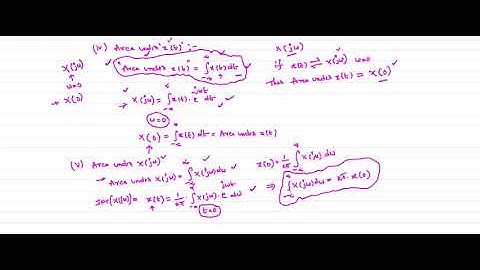 (iv) Area under x(t) :-
"Area under x(t)" = ∫_{-∞}^{∞} x(t) dt
X(jω)
↑
ω=0
→ X(0)
→ X(jω) = ∫_{-∞}^{∞} x(t) · e^{-jωt} dt
ω=0
X(0) = ∫_{-∞}^{∞} x(t) dt = Area under x(t)
X(jω)
if x(t) ⇌ X(jω) ω=0
This Area under x(t) = X(0)
(v) Area under X(jω)
→ Area under X(jω) = ∫_{-∞}^{∞} X(jω) dω
IFT[X(jω)] = x(t) = 1/2π · ∫_{-∞}^{∞} X(jω) · e^{jωt} dω
t=0
x(0) = 1/2π ∫_{-∞}^{∞} X(jω) dω
⇒ ∫_{-∞}^{∞} X(jω) dω = 2π · x(0)